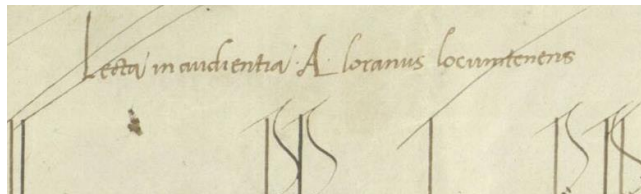 Lecta in audientia · A · loranus locumtenens